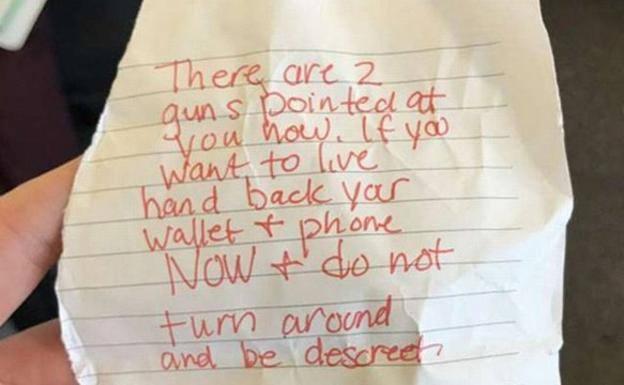 There are 2
guns pointed at
you now. If you
want to live
hand back your
wallet + phone
NOW + do not
turn around
and be descreet